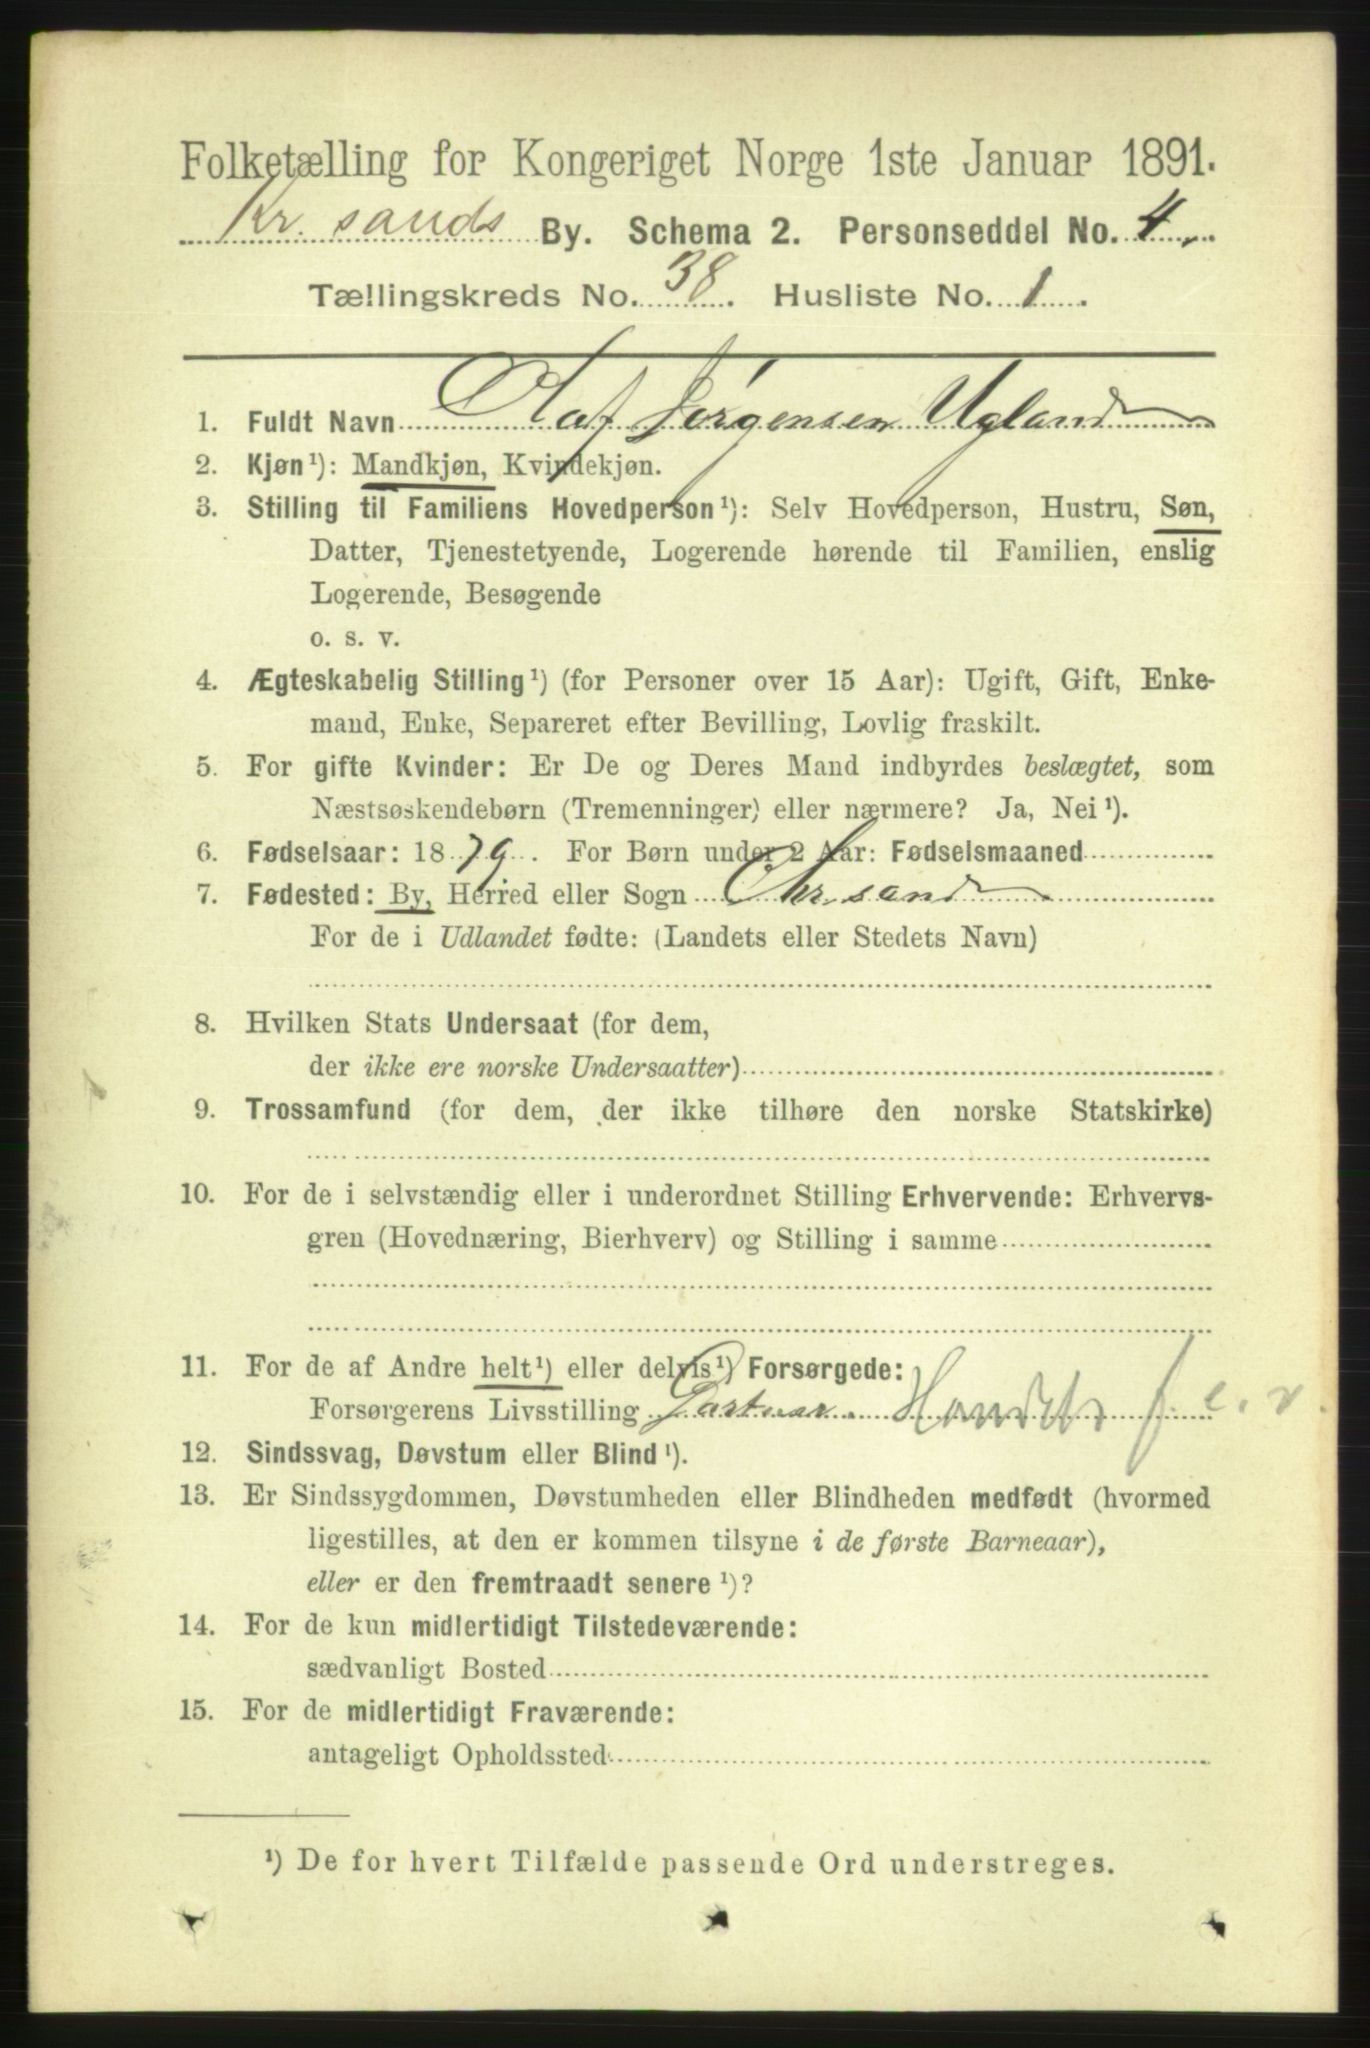 Folketælling for Kongeriget Norge 1ste Januar 1891.
Kr. sands By. Schema 2. Personseddel No. 4.
Tællingskreds No. 38. Husliste No. 1.
1. Fuldt Navn Olaf Jørgensen Ugland
2. Kjøn¹): Mandkjøn, Kvindekjøn.
3. Stilling til Familiens Hovedperson¹): Selv Hovedperson, Hustru, Søn,
Datter, Tjenestetyende, Logerende hørende til Familien, enslig
Logerende, Besøgende
o. s. v.
4. Ægteskabelig Stilling¹) (for Personer over 15 Aar): Ugift, Gift, Enke-
mand, Enke, Separeret efter Bevilling, Lovlig fraskilt.
5. For gifte Kvinder: Er De og Deres Mand indbyrdes beslægtet, som
Næstsøskendebørn (Tremenninger) eller nærmere? Ja, Nei¹).
6. Fødselsaar: 1879. For Børn under 2 Aar: Fødselsmaaned
7. Fødested: By, Herred eller Sogn Chr.sand
For de i Udlandet fødte: (Landets eller Stedets Navn)
8. Hvilken Stats Undersaat (for dem,
der ikke ere norske Undersaatter)
9. Trossamfund (for dem, der ikke tilhøre den norske Statskirke)
10. For de i selvstændig eller i underordnet Stilling Erhvervende: Erhvervs-
gren (Hovednæring, Bierhverv) og Stilling i samme
11. For de af Andre helt¹) eller delvis¹) Forsørgede:
Forsørgerens Livsstilling Gartner. e. v.
12. Sindssvag, Døvstum eller Blind¹).
13. Er Sindssygdommen, Døvstumheden eller Blindheden medfødt (hvormed
ligestilles, at den er kommen tilsyne i de første Barneaar),
eller er den fremtraadt senere¹)?
14. For de kun midlertidigt Tilstedeværende:
sædvanligt Bosted
15. For de midlertidigt Fraværende:
antageligt Opholdssted
¹) De for hvert Tilfælde passende Ord understreges.